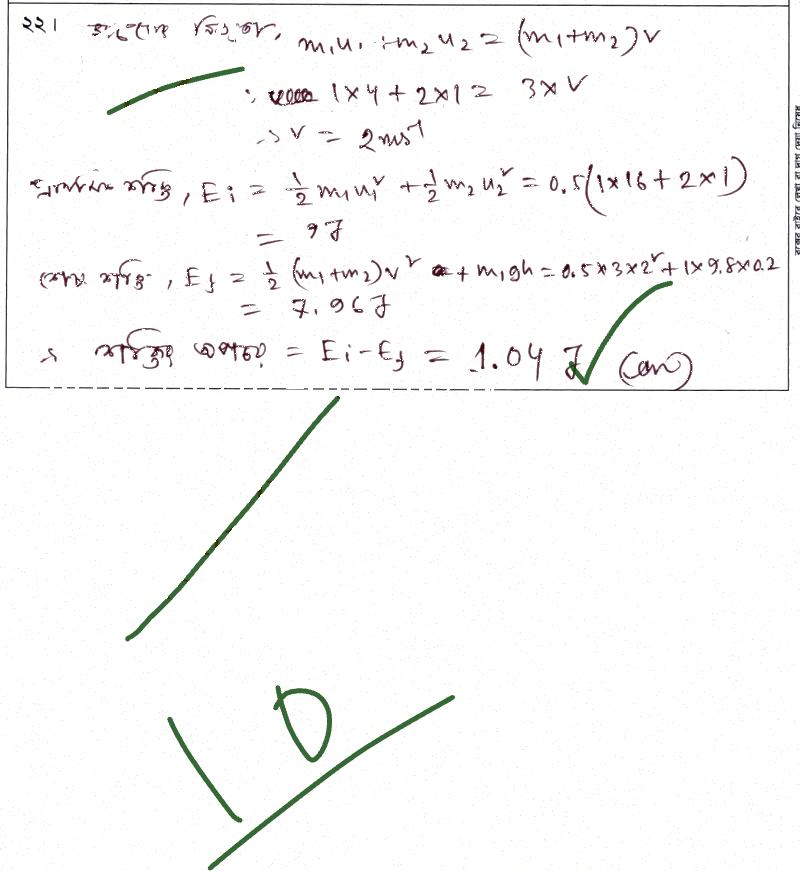 ২২। m₁u₁ + m₂u₂ = (m₁+m₂)v
∴ 1×4 + 2×1 = 3×v
∴ v = 2ms⁻¹
শক্তি, Ei = ½m₁u₁² + ½m₂u₂² = 0.5(1×16 + 2×1)
= 9J
শেষ শক্তি, Ef = ½(m₁+m₂)v² + m₁gh = 0.5×3×2²+1×9.8×0.2
= 7.96J
∴ শক্তির অপচয় = Ei-Ef = 1.04 J (Ans)
10